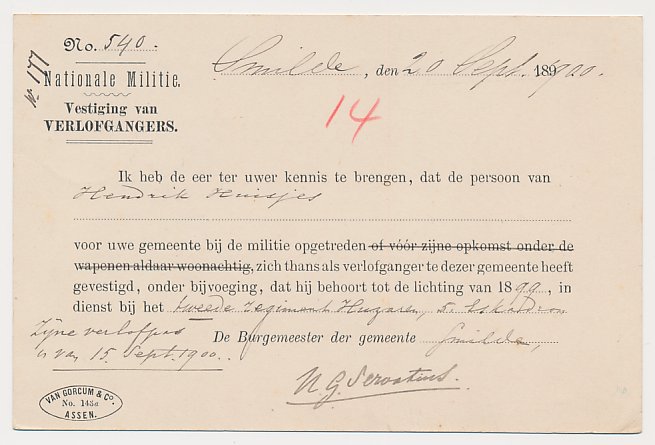 No. 540.
No 177
Nationale Militie.
Vestiging van
VERLOFGANGERS.
Smilde, den 20 Sept. 1891900.
14
Ik heb de eer ter uwer kennis te brengen, dat de persoon van
Hendrik Huisjes
voor uwe gemeente bij de militie opgetreden of vóór zijne opkomst onder de
wapenen aldaar woonachtig, zich thans als verlofganger te dezer gemeente heeft
gevestigd, onder bijvoeging, dat hij behoort tot de lichting van 1899., in
dienst bij het tweede regiment Huzaren, 5e Eskadron
Zijne verlofpas
is van 15. Sept. 1900.
De Burgemeester der gemeente Smilde,
VAN GORCUM & Co.
No. 143a
ASSEN.